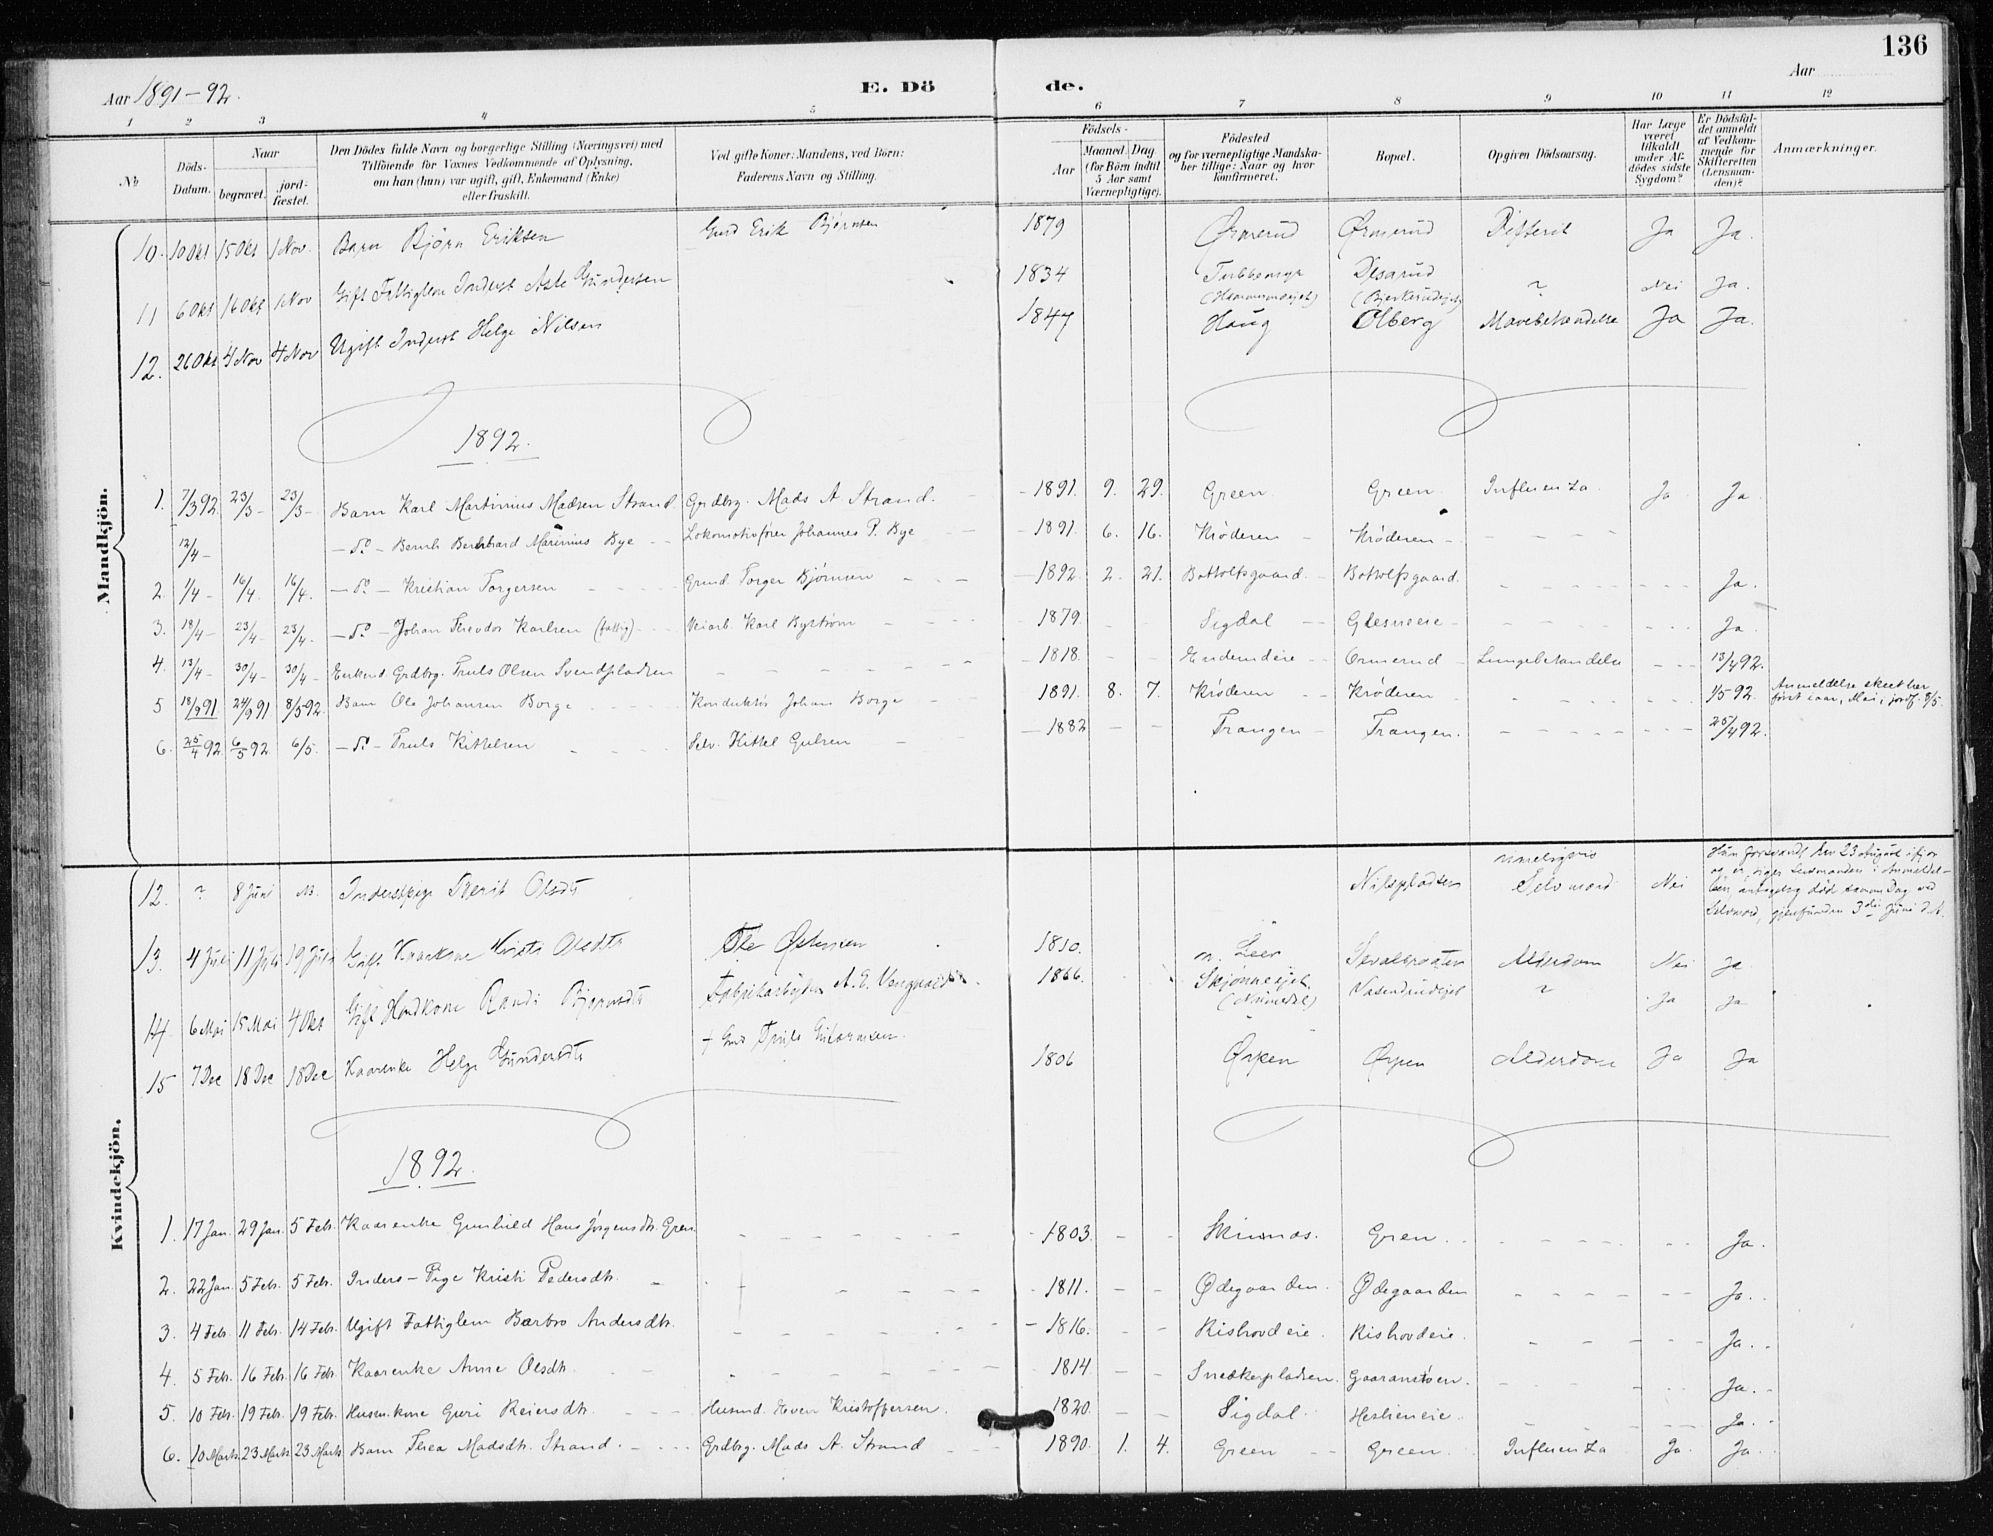 136
Aar 1891-92.
E. Dö de.
Aar
1 2 3 4 5 6 7 8 9 10 11 12
No
Döds-Datum.
Naar
begravet.
jord-fæstet.
Den Dödes fulde Navn og borgerlige Stilling (Næringsvei) med
Tilföiende for Voxnes Vedkommende af Oplysning,
om han (hun) var ugift, gift, Enkemand (Enke)
eller fraskilt.
Ved gifte Koner: Mandens, ved Börn:
Faderens Navn og Stilling.
Födsels-
Aar
Maaned. Dag
(for Börn indtil
5 Aar samt
Værnepligtige).
Födested
og for værnepligtige Mandska-
ber tillige: Naar og hvor
konfirmeret.
Bopæl.
Opgiven Dödsaarsag.
Har Læge
været
tilkaldt
under Af-
dödes sidste
Sygdom?
Er Dödsfal-
det anmeldt
af Vedkom-
mende for
Skifteretten
(Lensman-
den)?
Anmærkninger.
Mandkjön.
10. 10 Okt 15 Okt 1 Nov. Barn Bjørn Eriksen Gmd Erik Bjørnsen 1879 Ørmerud Ørmerud Difterit Ja Ja.
11 6 Okt 16 Okt 1 Nov Gift Fattiglem Inderst Asle Gundersen 1834 ? Nei Ja.
12. 26 Okt 4 Nov 4 Nov Ugift Inderst Helge Nilsen 1847 Haug Olberg Mavebetændelse Ja Ja.
1892.
1. 7/3 92 23/3 - 23/3 - Barn Karl Martinius Madsen Strand Grdbrg. Mads A. Strand. 1891. 9. 29. Green Green Influenza Ja Ja.
12/4 - - do - Bernhard Marinius Bye Lokomotivfører Johannes P. Bye 1891. 6. 16. Krøderen Krøderen
2. 1/4 - 16/4. 16/4. - do - Kristian Torgersen Grmd Torger Bjørnsen 1892. 2. 21. Botholfsgaard Botholfsgaard. Ja.
3. 18/4 - 23/4 - 23/4. - do - Johan Theodor Karlsen (fattig) Veiarb. Karl Byström 1879. Sigdal Glesneeie Ja.
4. 13/4 - 30/4 - 30/4 - Enkemd Grdbrg. Truls Olsen Svendspladsen 1818. Endemdeie Ormerud Lungebetændelse 13/4 92.
5 18/9 91 24/9 91 8/5 92. Barn Ole Johansen Borge Konduktør Johan Borge 1891. 8. 7. Krøderen Krøderen 1/5 92. Anmeldelse skeet her
først iaar, Mai, jordf. 8/5.
6. 25/4 92. 6/5 92 6/5. - do - Truls Kittelsen Selv. Kittel Gulsen 1882 Trangen Trangen. 25/4 92.
Kvindekjön.
12. ? 8 Juni Inderstpige Bjerit Olsdtr Nilspladsen Selvmord Nei Hun forsvandt den 23 August ifjor
og er, siger Lensmanden i Anmeldel-
sen, antagelig død samme Dag ved
Selvmord, gjenfunden 3die Juni d.A.
13. 4 Juli 11 Juli 19 Juli Gift Kaarkone Kristi Olsdtr Ole Østensen 1810. Alderdom Nei Ja
14. 6 Mai 15 Mai 4 Okt Gift Randi Fabrikarbeider A. E. 1866. Skjønneejet. ? Ja Ja
15 7 Dec 18 Dec 18 Dec Kaarenke Helge Gundersdtr + Gmd Truls Guttormsen. 1806 Ørpen Ørpen Alderdom Ja Ja
1892.
1. 17 Jan. 29 Jan. 5 Feb. Kaarenke Gunhild Hans Jørgensdtr. Gren 1803. Skinnas. Gren. Ja.
2. 22 Jan. 5 Feb. 5 Feb. Inders-Pige Kristi Pedersdtr. 1811. Ødegaarden. Ødegaarden Ja.
3. 4 Feb. 11 Feb. 14 Feb. Ugift Fattiglem Barbro Andersdtr. 1816. Rishovdeie. Rishovdeie. Ja.
4. 5 Feb. 16 Feb. 16 Feb. Kaarenke Anne Olsdtr. 1814 Snedkerpladsen. Gaaranstøen. Ja.
5. 10 Feb. 19 Feb. 19 Feb. Husm.kone Guri Reiersdtr. Husmd. Even Kristoffersen. 1820. Sigdal. Ja.
6. 10 Marts 23 Marts 23 Marts Barn Thea Madsdtr. Strand. Grdbrg. Mads A. Strand 1890. 1. 4. Green Green. Influenza Ja. Ja.